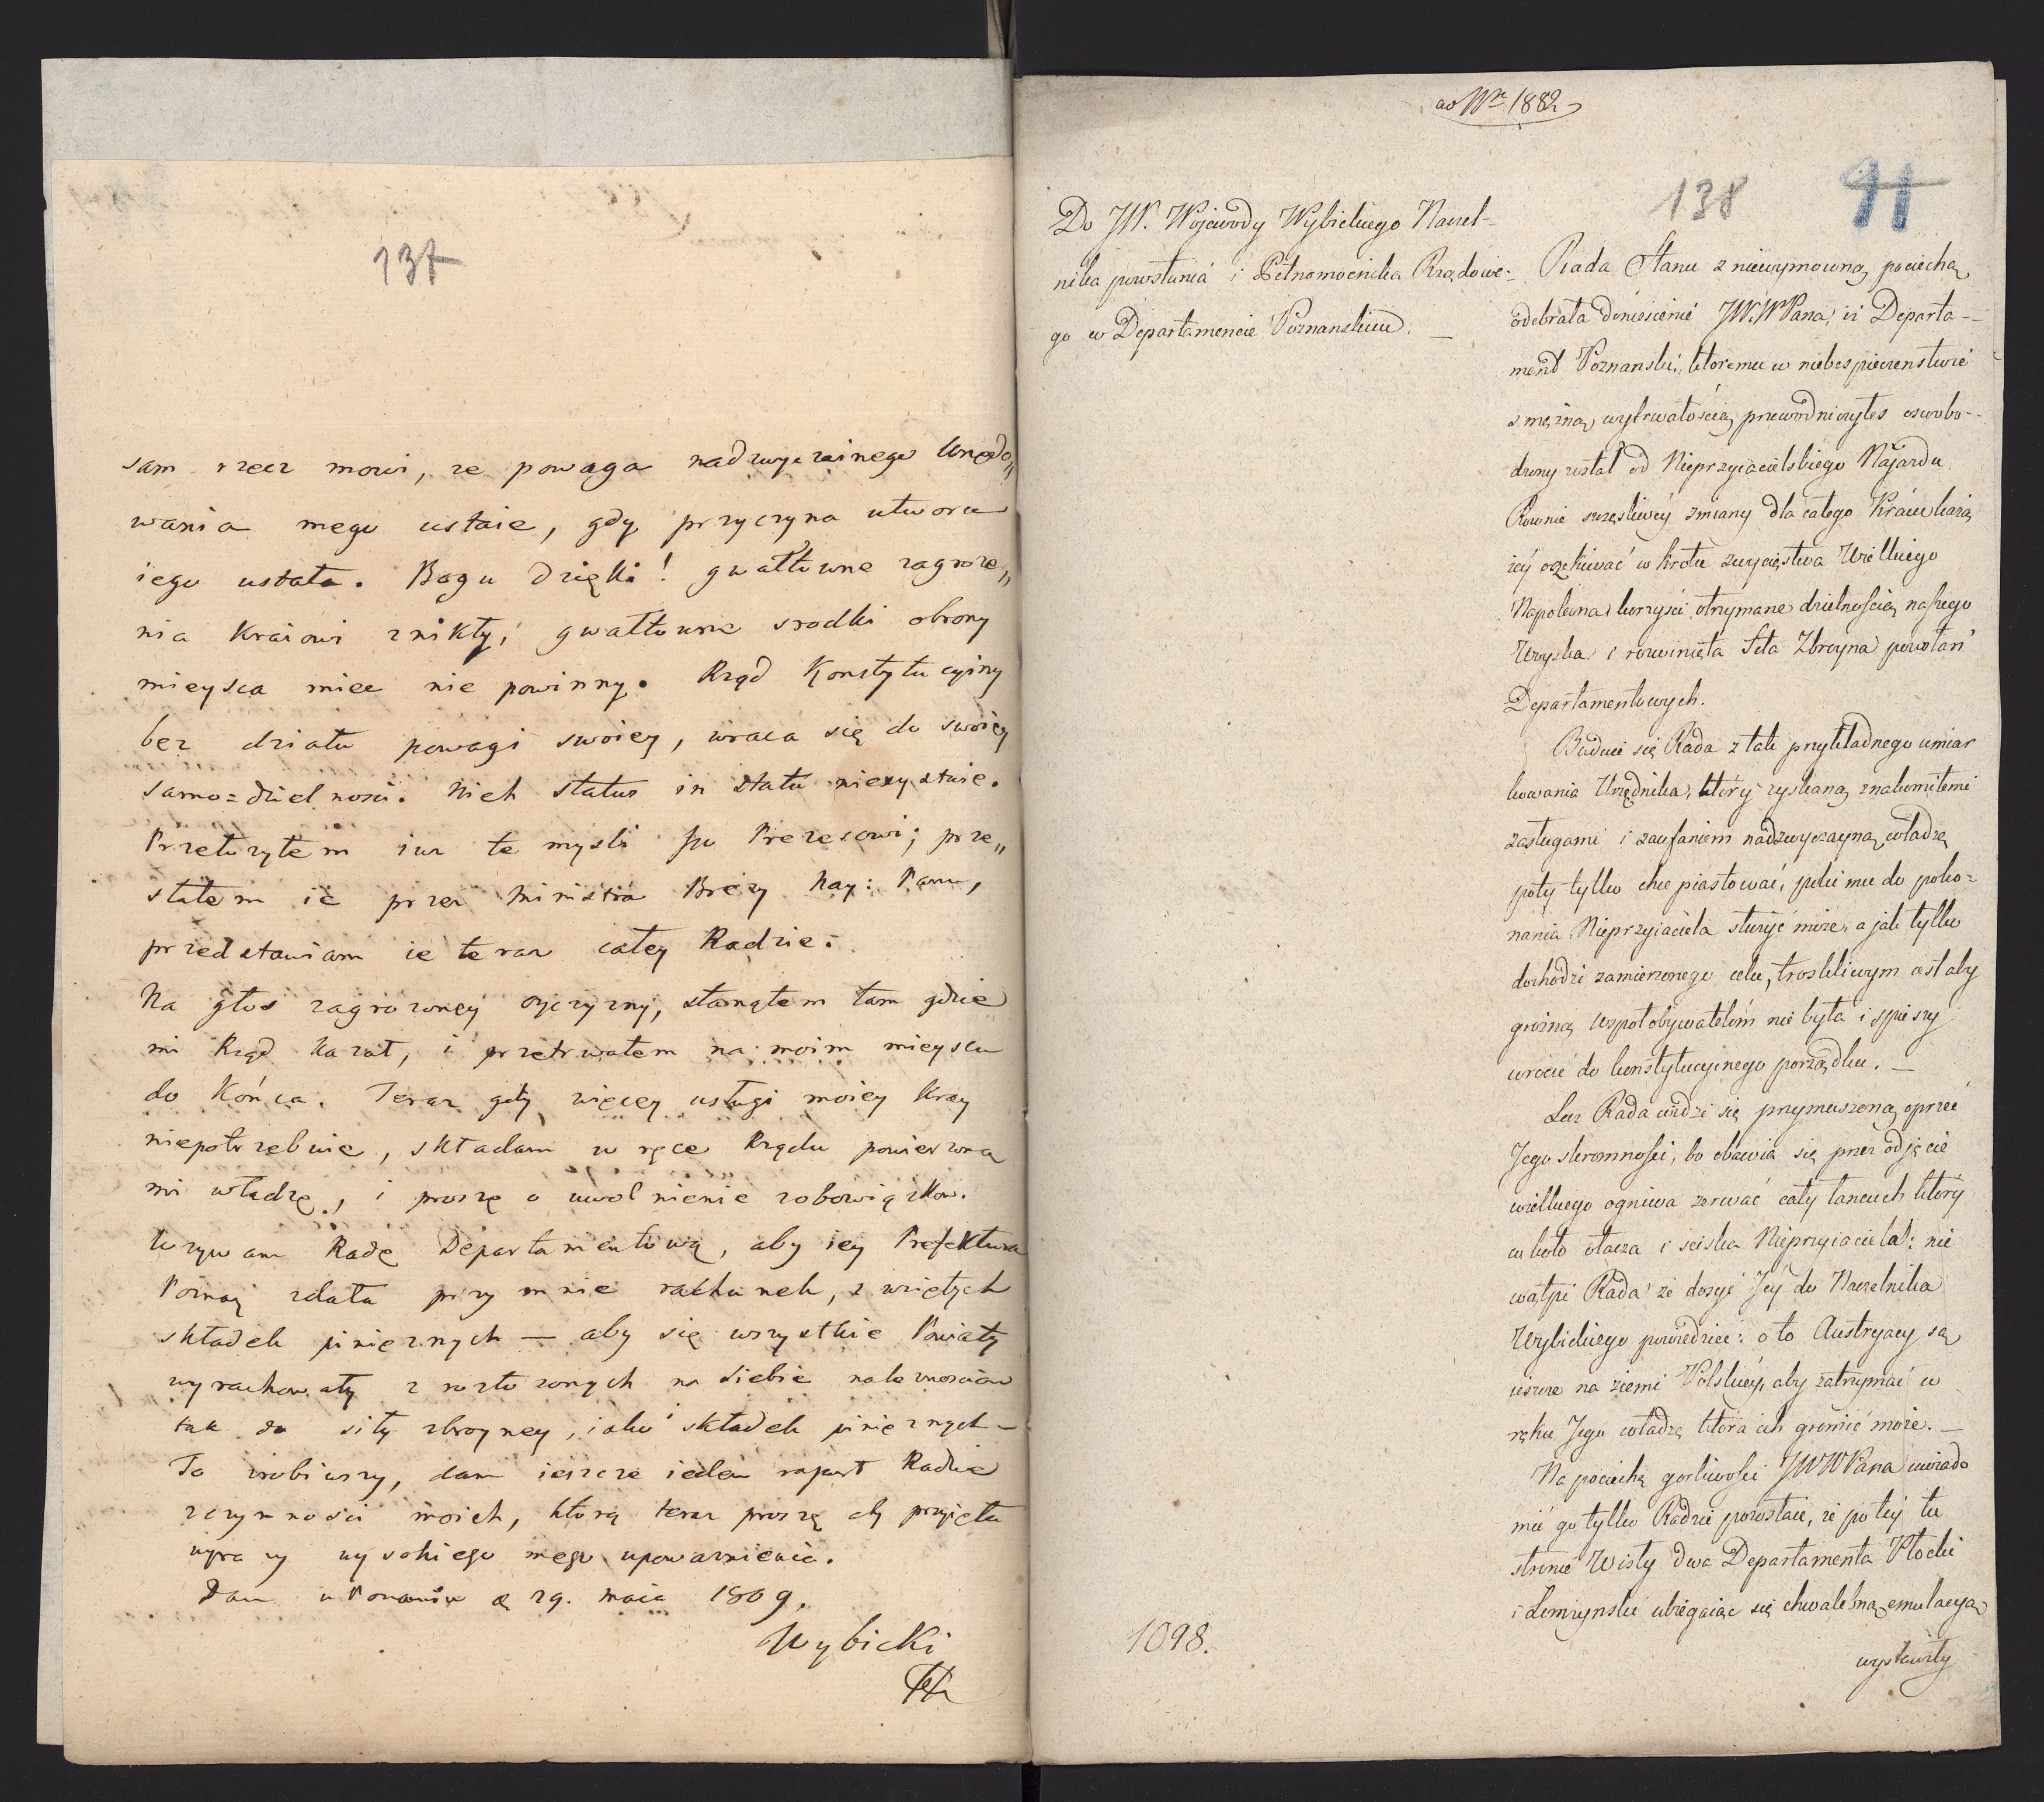 137
sam rzecz mowi, ze powaga nadzwyczainego Urzędo„
wania mego ustaie, gdy przyczyna utworu
iego ustała. Bogu dzięki! gwałtowne zagroze„
nia Kraiowi znikły, gwałtowne srodki obrony
mieysca miec nie powinny. Rząd Konstytucyiny
bez działu powagi swoiey, wraca się do swoiey
samo=dzielnosci. Niech status in statu nieexystuie.
Przełozyłem iuz te mysli JW Prezesowi; prze„
słałem ie przez Ministra Brezy Nay: Panu,
przedstawiam ie teraz całey Radzie.
Na głos zagrozoney oyczyzny, stanąłem tam gdzie
mi Rząd kazał, i przetrwałem na moim mieyscu
do Końca. Teraz gdy więcey usługi moiey Kray
niepotrzebuie, składam w ręce Rządu powierzoną
mi władzę, i proszę o uwolnienie zobowiązkow.
Wzywam Radę Departamentową, aby iey Prefektura
Pozna: zdała przy mnie rachunek, z wziętych
składek pinięznych — aby się wszystkie Powiaty
wyrachowały z rozłozonych na siebie naleznosciow
tak do siły zbroyney, iako składek pinięznych —
To zrobiwszy, dam ieszcze ieden raport Radzie
czynnosci moich, którą teraz proszę aby przyięła
wyrazy wysokiego mego upowaznienia.
Dan w Poznaniu d. 29. maia 1809.
Wybicki
ad Nr. 1882
138 91
Do JW. Wojewody Wybickiego Naczel-
nika powstania i Pełnomocnika Rządowe-
go w Departamencie Poznanskim. —
Rada Stanu z niewymowną pociechą
odebrała doniesienie JW.WPana, iż Departa-
ment Poznanski, ktoremu w niebespieczenstwie
z mężną wytrwałością przewodniczyłes oswobo-
dzony został od Nieprzyiacielskiego Najazdu.
Rownie szczęśliwéy zmiany dla całego Kraiu każą
iéy oczekiwać w krotce zwycięstwa Wielkiego
Napoleona korzyści otrzymane dzielnością naszego
Woyska i rozwinięta Siła Zbroyna powstań
Departamentowych.
Buduie się Rada z tak przykładnego umiar
kowania Urzędnika, który zyskaną znakomitemi
zasługami i zaufaniem nadzwyczayną władzę
poty tylko chce piastować, poki mu do poko-
nania Nieprzyiaciela służyć może, a jak tylko
dochodzi zamierzonego celu, troskliwym iest aby
groźną wspołobywatelóm nie była i spieszy
wrócić do konstytucyinego porządku. —
Lecz Rada widzi się przymuszoną oprzeć
Jego skromności, bo obawia się przez odjęcie
wielkiego ogniwa zerwać cały łancuch który
w koło otacza i sciska Nieprzyiaciela: nie
wątpi Rada że dosyć Jéy do Naczelnika
Wybickiego powiedzieć: oto Austryacy są
ieszcze na ziemi Polskiéy, aby zatrzymać w
ręku Jego władzę która ich gromić może. —
Na pociechę gorliwości JWWPana uwiado
mić go tylko Radzie pozostaie, że po téy tu
stronie Wisły dwa Departamenta Płocki
i Łomżynski ubiegaiąc się chwalebną emulacyą
wystawiły
1098.